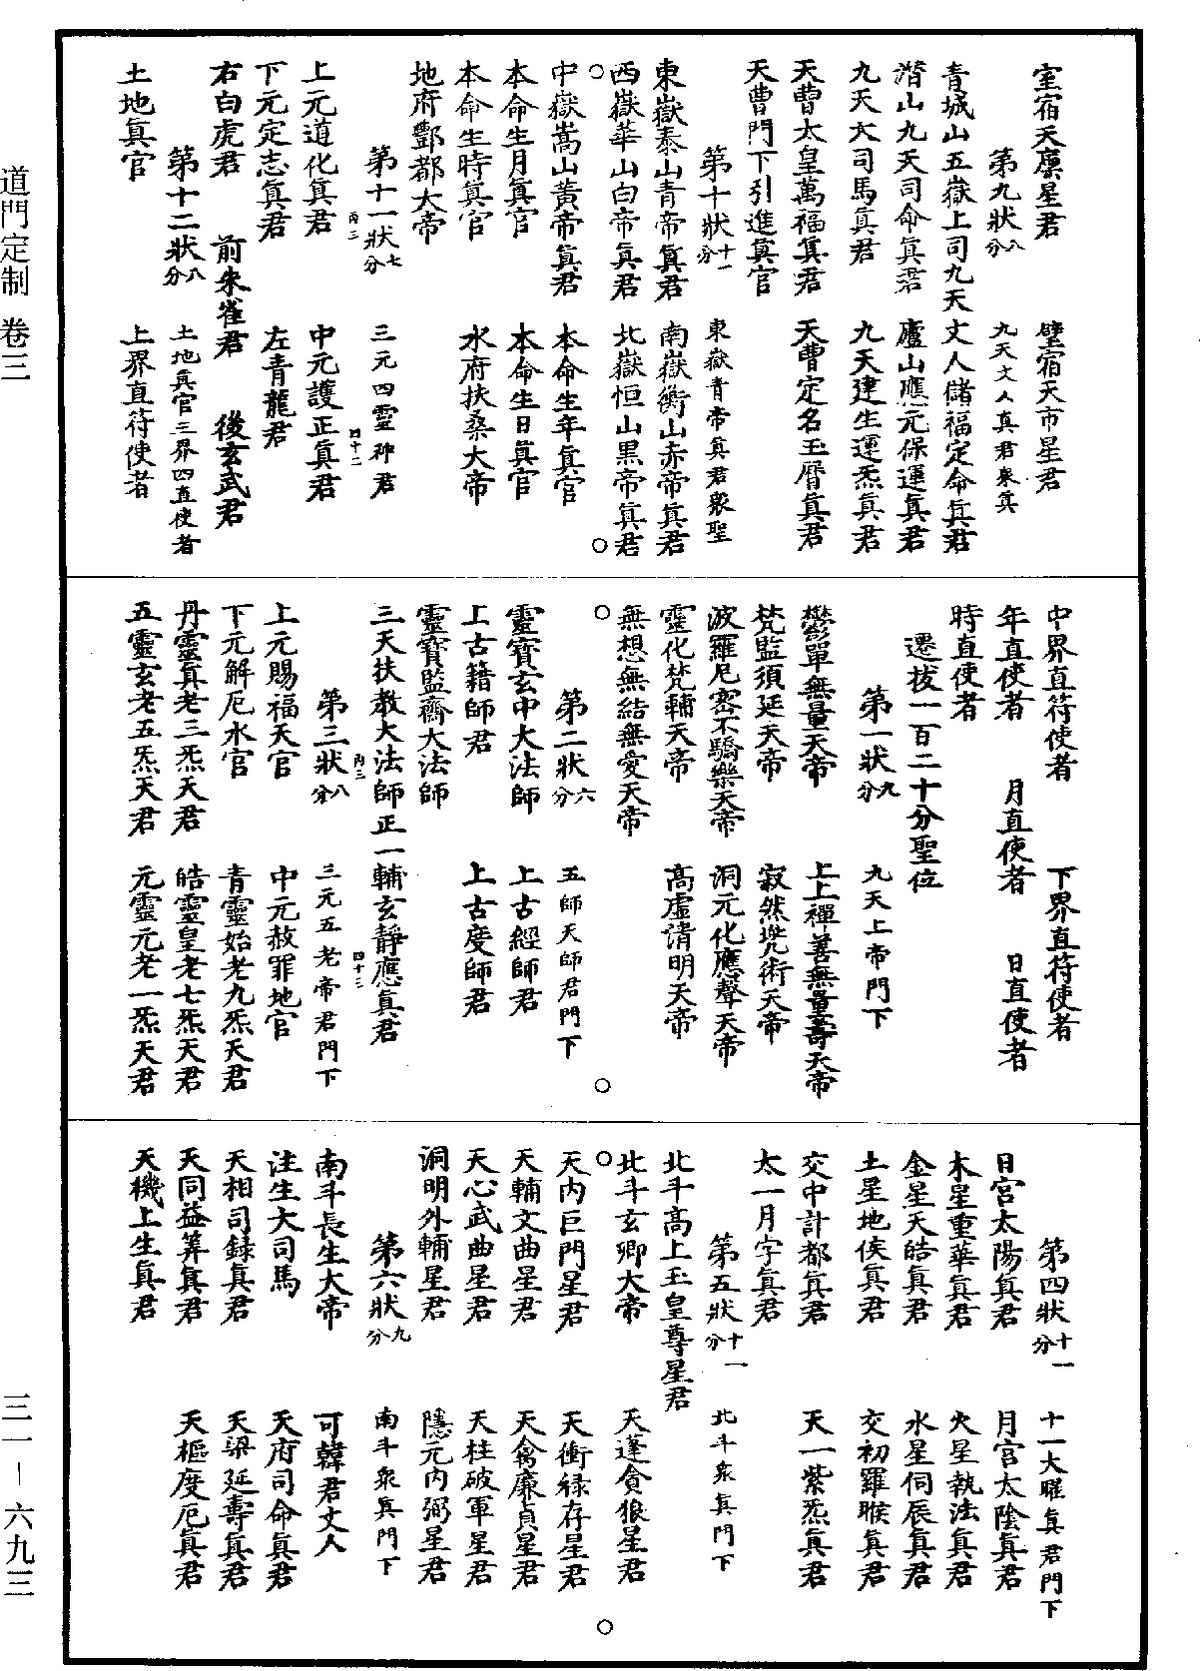 室宿天廩星君　壁宿天市星君
第九狀八分　九天丈人真君衆真
青城山五嶽上司九天丈人儲福定命真君
潛山九天司命真君　廬山應元保運真君
九天大司馬真君　九天建生運炁真君
天曹太皇萬福真君　天曹定名玉曆真君
天曹門下引進真官
第十狀十一分　東嶽青帝真君衆聖
東嶽泰山青帝真君　南嶽衡山赤帝真君
西嶽華山白帝真君　北嶽恒山黑帝真君
中嶽嵩山黃帝真君　本命生年真官
本命生月真官　本命生日真官
本命生時真官　水府扶桑大帝
地府酆都大帝
第十一狀七分　三元四靈神君
丙三　四十二
上元道化真君　中元護正真君
下元定志真君　左青龍君
右白虎君　前朱雀君　後玄武君
第十二狀八分　土地真官三界四直使者
土地真官　上界直符使者
中界直符使者　下界直符使者
年直使者　月直使者　日直使者
時直使者
遷拔一百二十分聖位
第一狀九分　九天上帝門下
鬱單無量天帝　上上禪善無量壽天帝
梵監須延天帝　寂然兠術天帝
波羅尼密不驕樂天帝　洞元化應聲天帝
靈化梵輔天帝　高虛清明天帝
無想無結無愛天帝
第二狀六分　五師天師君門下
靈寶玄中大法師　上古經師君
上古籍師君　上古度師君
靈寶監齋大法師
三天扶教大法師正一輔玄靜應真君
丙三　四十三
第三狀八分　三元五老帝君門下
上元賜福天官　中元赦罪地官
下元解厄水官　青靈始老九炁天君
丹靈真老三炁天君　皓靈皇老七炁天君
五靈玄老五炁天君　元靈元老一炁天君
第四狀十一分　十一大曜真君門下
日宮太陽真君　月宮太陰真君
木星重華真君　火星執法真君
金星天皓真君　水星伺辰真君
土星地侯真君　交初羅睺真君
交中計都真君　天一紫炁真君
太一月孛真君
第五狀十一分　北斗衆真門下
北斗高上玉皇尊星君
北斗玄卿大帝　天蓬貪狼星君
天内巨門星君　天衝祿存星君
天輔文曲星君　天禽廉貞星君
天心武曲星君　天柱破軍星君
洞明外輔星君　隱元內弼星君
第六狀九分　南斗衆真門下
南斗長生大帝　可韓君丈人
注生大司馬　天府司命真君
天相司錄真君　天梁延壽真君
天同益筭真君　天樞度厄真君
天機上生真君
道門定制　卷三
三一－六九三